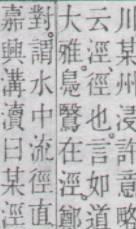 川某州浸許意略
云涇徑也言如道
大雅鳧鷖在涇鄭
對謂水中流徑直
嘉興溝瀆曰某涇